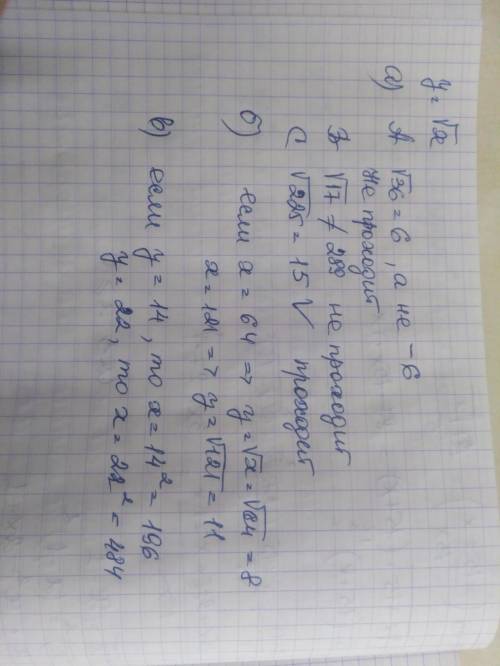 y = √x
а) А √36 = 6, а не -6
не проходит
В √17 ≠ 289 не проходит
С √225 = 15 √ проходит
б) если x = 64 => y = √x = √64 = 8
x = 121 => y = √121 = 11
в) если y = 14, то x = 14² = 196
y = 22, то x = 22² = 484